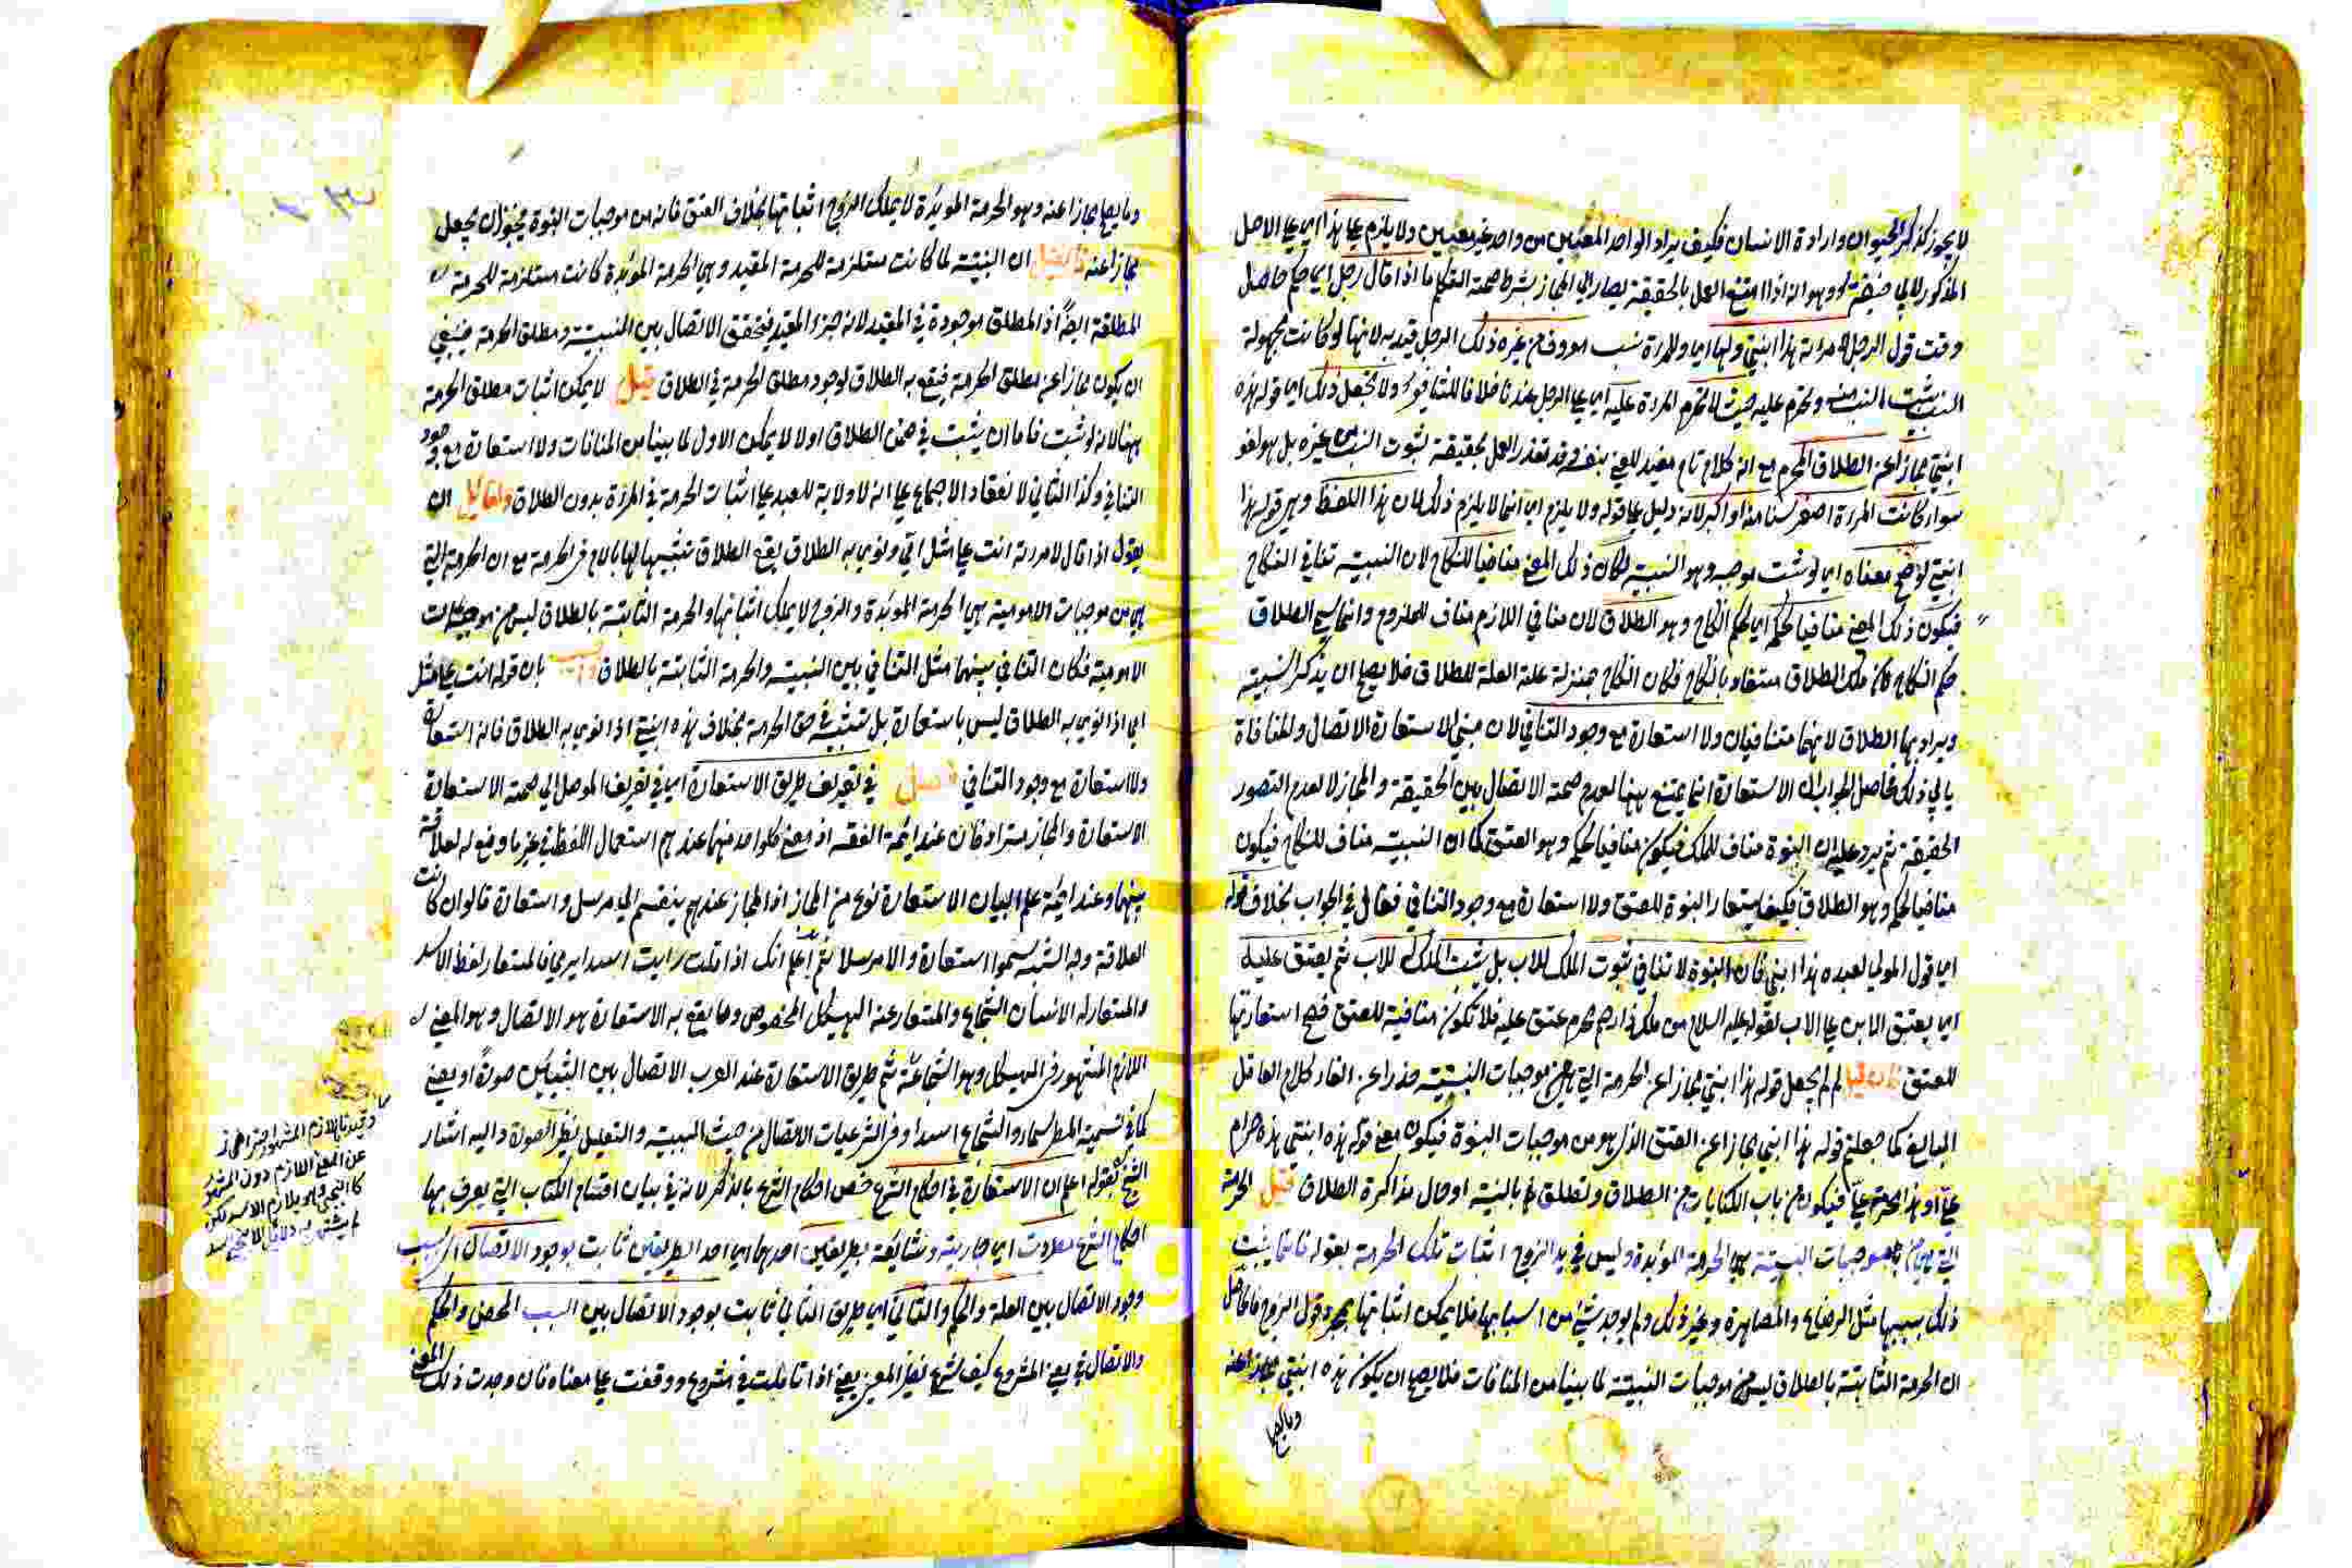 لا يجوز كذكر الحيوان وارادة الانسان فكيف يراد الواحد المعين من واحد غير معين ولا يلزم على هذا اي على الاصل
المذكور لابي حنيفة وهو انه اذا امتنع العمل بالحقيقة يصار الى المجاز بشرط صحة التكلم ما اذا قال رجل اي حكم حاصل
وقت قول الرجل لامراته هذا ابنتي ولها اي وللمراة نسب معروف من غيره ذلك الرجل قيد به لانها لو كانت مجهولة
النسب يثبت النسب منه وتحرم عليه حيث لا تحرم المراة عليه اي على الرجل عندنا خلافا للشافعي ولا تجعل ذلك اي قوله هذه
ابنتي مجازا عن الطلاق المحرم مع انه كلام تام مفيد للمعنى بنفسه وقد تعذر العمل بحقيقته لثبوت النسب من غيره بل هو لغو
سواء كانت المراة اصغر سنا منه او اكبر لانه دليل على قوله ولا يلزم اي انما لا يلزم ذلك لان هذا اللفظ وهو قوله هذا
ابنتي لو صح معناه اي لو ثبت موجبه وهو البنتية لكان ذلك المعنى منافيا للنكاح لان البنتية تنافي النكاح
فيكون ذلك المعنى منافيا لحكمه اي لحكم النكاح وهو الطلاق لان منافي اللازم مناف للملزوم وانما سمي الطلاق
حكم النكاح لان ملك الطلاق مستفاد بالنكاح فكان النكاح بمنزلة علة العلة للطلاق فلا يصح ان يذكر البنتية
ويراد بها الطلاق لانهما متنافيان ولا استعارة مع وجود التنافي لان مبنى الاستعارة الاتصال والمنافاة
يابى ذلك فحاصل الجواب ان الاستعارة انما يمتنع ههنا لعدم صحة الاتصال بين الحقيقة والمجاز لا لعدم التصور
الحقيقة ثم يرد عليه ان البنوة مناف للملك فيكون منافيا لحكمه وهو العتق كما ان البنتية مناف للنكاح فيكون
منافيا لحكمه وهو الطلاق فكيف استعار البنوة للعتق ولا استعارة مع وجود التنافي فقال في الجواب بخلاف قوله
اي قول المولى لعبده هذا ابني فان البنوة لا تنافي ثبوت الملك للاب بل يثبت الملك للاب ثم يعتق عليه
اي يعتق الابن على الاب لقوله عليه السلام من ملك ذا رحم محرم عتق عليه فلا تكون منافية للعتق فصح استعارتها
للعتق فان قيل لم لم يجعل قوله هذا ابنتي مجازا عن الحرمة التي هي من موجبات البنتية حذرا عن الغاء كلام العاقل
البالغ كما جعلتم قوله هذا ابني مجازا عن العتق الذي هو من موجبات البنوة فيكون معنى قوله هذه ابنتي هذه حرام
علي او هذه محرمة علي فيكون من باب الكنايات من الطلاق وتطلق بالنية او حال مذاكرة الطلاق قيل الحرمة
التي هي من موجبات البنتية هي الحرمة المؤبدة وليس في يد الزوج اثبات تلك الحرمة بقوله فانما يثبت
ذلك بسببها مثل الرضاع والمصاهرة وغير ذلك ولم يوجد شيء من اسبابها فلا يمكن اثباتها بمجرد قول الزوج فالحاصل
ان الحرمة الثابتة بالطلاق ليس من موجبات البنتية لما بينا من المنافات فلا يصح ان يكون هذه ابنتي مجازا عنه
وما يصلح
وما يصلح مجازا عنه وهو الحرمة المؤبدة لا يملك الزوج اثباتها بخلاف العتق فانه من موجبات البنوة فيجوز ان يجعل
مجازا عنه فان قيل ان البنتية لما كانت مستلزمة للحرمة المقيد وهي الحرمة المؤبدة كانت مستلزمة للحرمة
المطلقة ايضا اذ المطلق موجودة في المقيد لانه جزء المقيد فيتحقق الاتصال بين البنتية ومطلق الحرمة فينبغي
ان يكون مجازا عن مطلق الحرمة فيقع به الطلاق لوجود مطلق الحرمة في الطلاق قيل لا يمكن اثبات مطلق الحرمة
ههنا لانه لو ثبت فاما ان يثبت في ضمن الطلاق اولا لا يمكن الاول لما بينا من المنافات ولا استعارة مع وجود
التنافي وكذا الثاني لانعقاد الاجماع على انه لا ولاية للعبد على اثبات الحرمة في المراة بدون الطلاق ولقائل ان
يقول اذا قال لامراته انت علي مثل امي ونوى به الطلاق يقع الطلاق تشبيها لها بالام في الحرمة مع ان الحرمة التي
هي من موجبات الامومية هي الحرمة المؤبدة والزوج لا يملك اثباتها والحرمة الثابتة بالطلاق ليس من موجبات
الامومية فكان التنافي بينهما مثل التنافي بين البنتية والحرمة الثابتة بالطلاق بان قوله انت علي مثل
امي اذا نوى به الطلاق ليس باستعارة بل تشبيه في حق الحرمة بخلاف هذه ابنتي اذا نوى به الطلاق فانه استعارة
ولا استعارة مع وجود التنافي فصل في تعريف طريق الاستعارة اي في تعريف الموصل الى صحة الاستعارة
الاستعارة والمجاز مترادفان عند ائمة الفقه اذ معنى كل واحد منهما عندهم استعمال اللفظ في غير ما وضع له لعلاقة
بينهما وعند ائمة علم البيان الاستعارة نوع من المجاز اذ المجاز عندهم ينقسم الى مرسل واستعارة قالوا ان كانت
العلاقة وجه الشبه سموا استعارة والا مرسلا ثم اعلم انك اذا قلت رايت اسدا يرمي فالمستعار لفظ الاسد
والمستعار له الانسان الشجاع والمستعار عنه الهيكل المخصوص وما يقع به الاستعارة هو الاتصال وهو المعنى
اللازم المشهور في الهيكل وهو الشجاعة ثم طريق الاستعارة عند العرب الاتصال بين الشيئين صورة او معنى
كما في تسمية المطر سماء والشجاع اسدا وفي الشرعيات الاتصال من حيث السببية والتعليل نظير الصورة واليه اشار
الشيخ بقوله اعلم ان الاستعارة في احكام الشرع خص احكام الشرع بالذكر لانه في بيان اقسام الكتاب التي يعرف بها
احكام الشرع مطردة اي جارية وشائعة بطريقين احدهما اي احد الطريقين ثابت بوجود الاتصال
وجود الاتصال بين العلة والحكم والثاني اي طريق الثاني ثابت بوجود الاتصال بين السبب المحض والحكم
والاتصال في معنى المشروع كيف شرع نظير المعنى يعني اذا تاملت في مشروع ووقفت على معناه فان وجدت ذلك المعنى
وقيدنا باللازم المشهور احترازا
عن المعنى اللازم دون المشهور